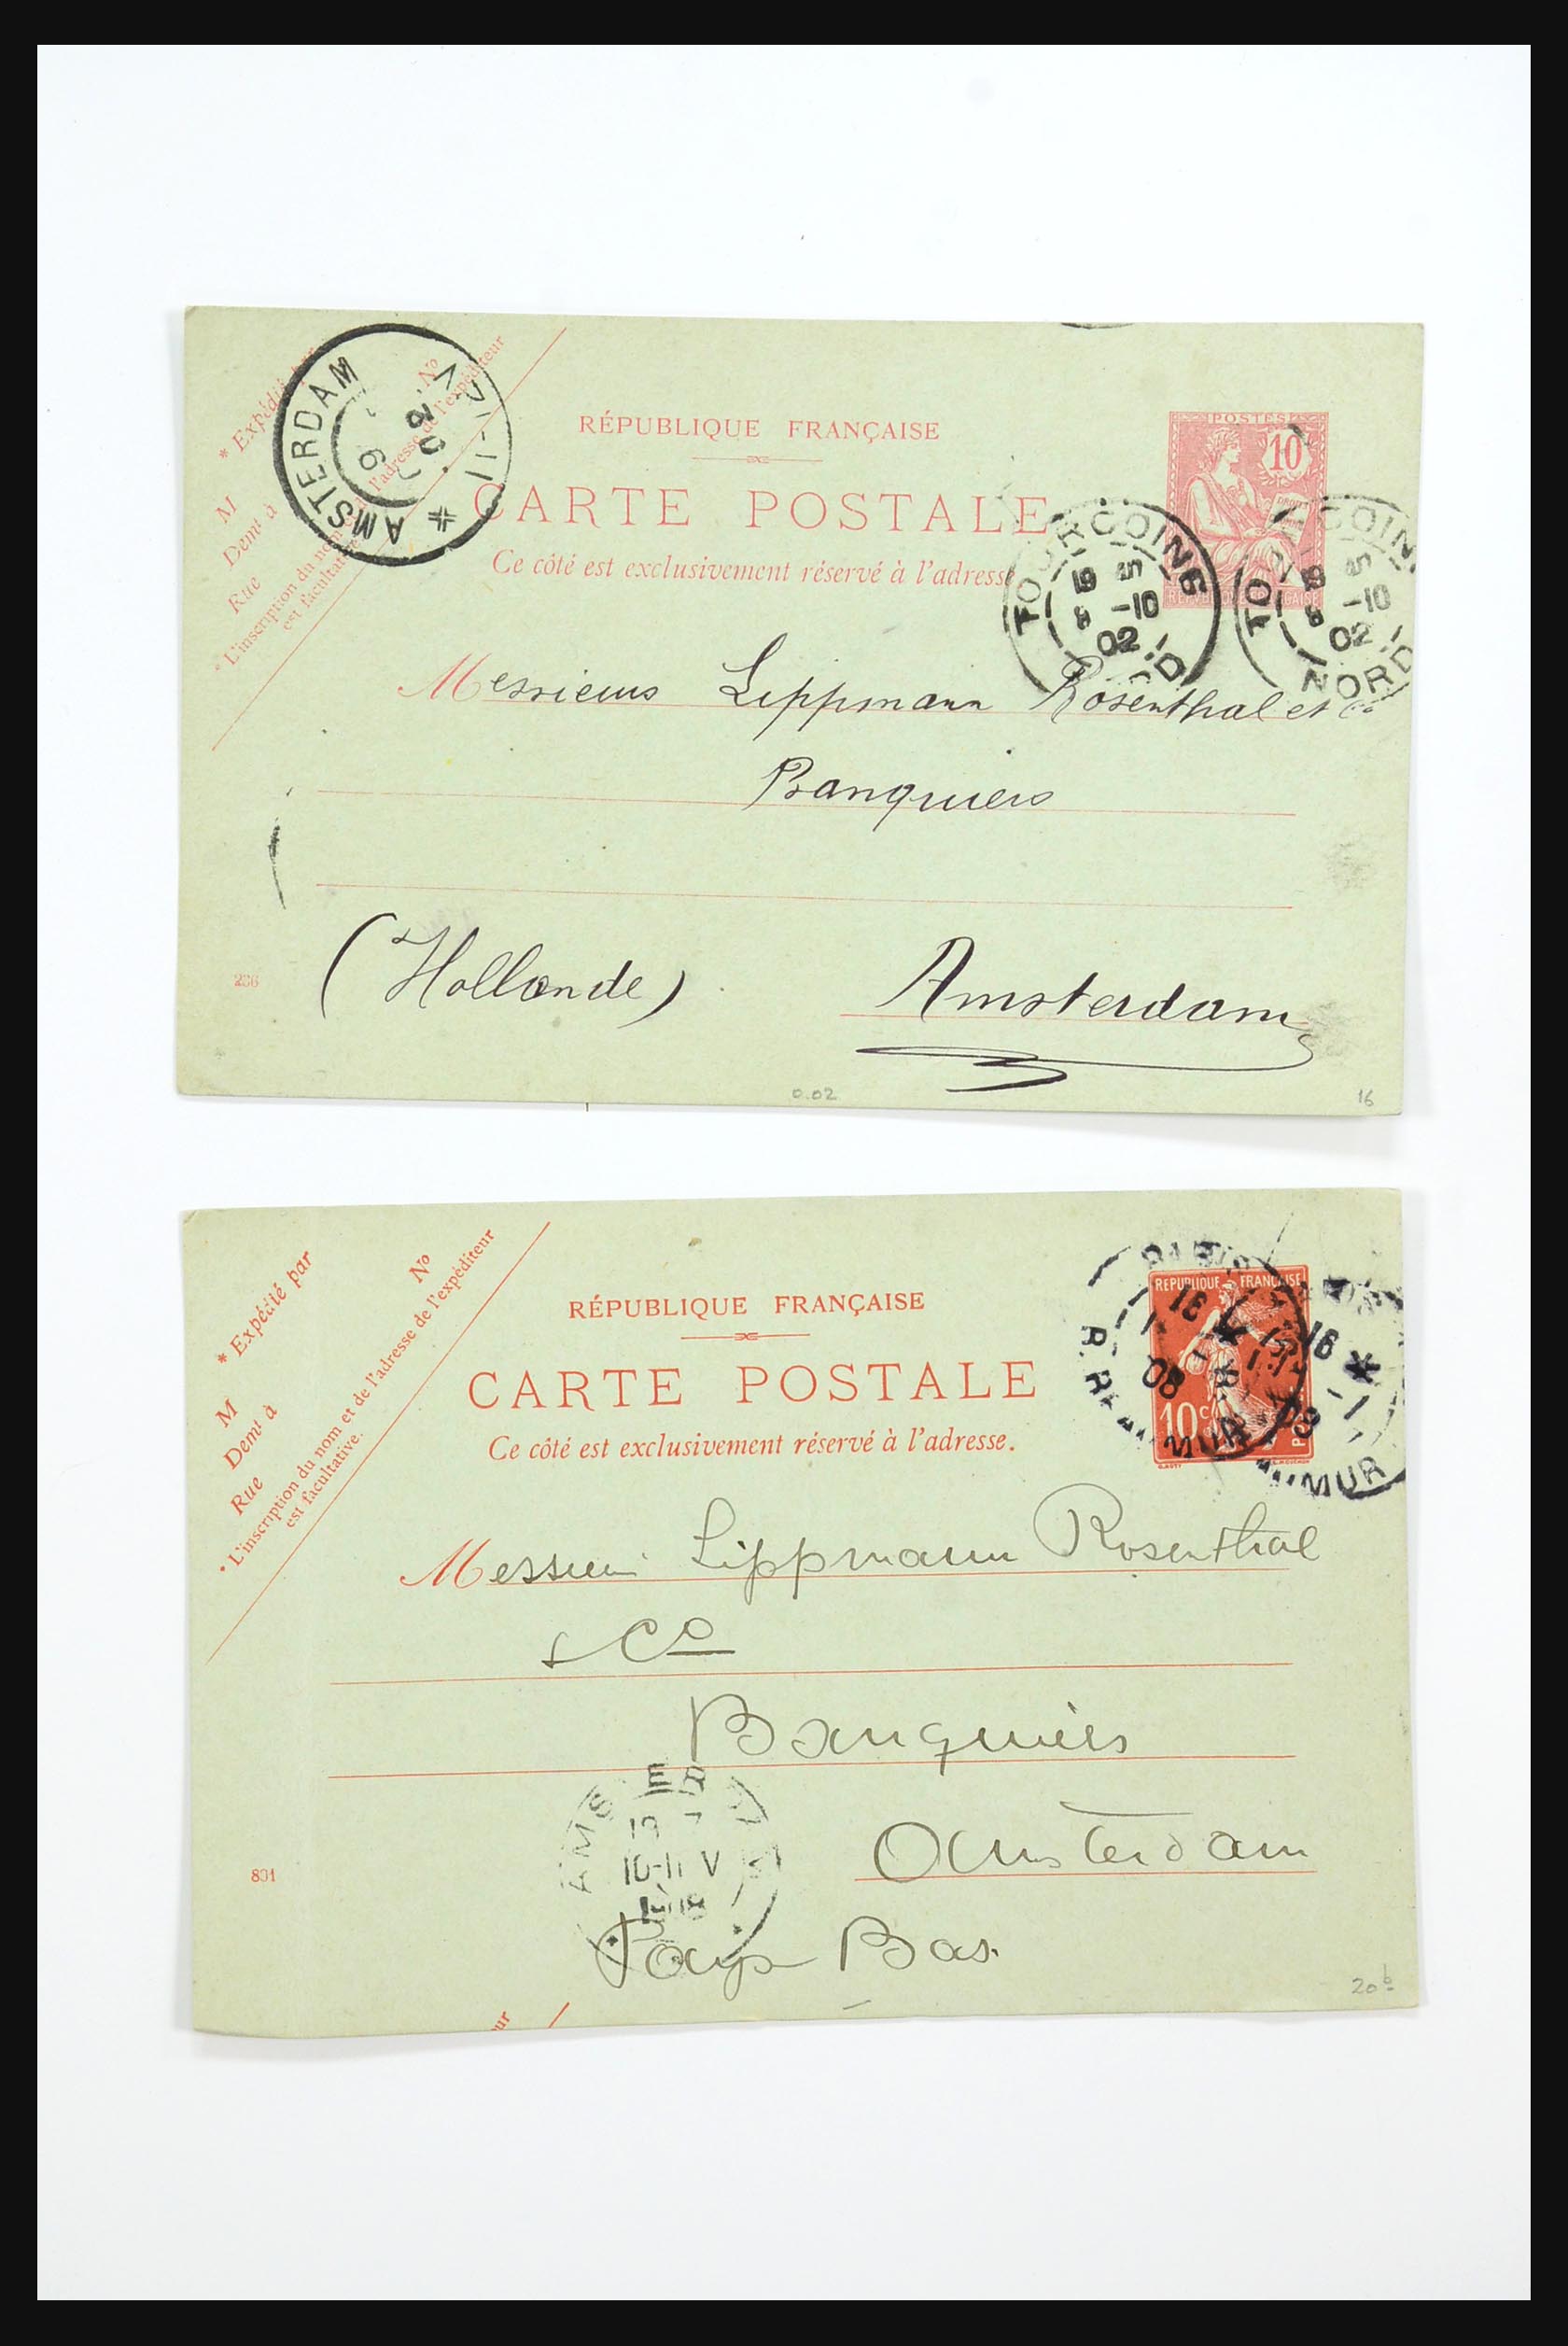 * Expédié par
M
Demt à
Rue
No
* L'inscription du nom et de l'adresse de l'expéditeur
est facultative.
AMSTERDAM
RÉPUBLIQUE FRANÇAISE
CARTE POSTALE
Ce côté est exclusivement réservé à l'adresse
POSTES
10
TOURCOING
5
-10
02
TOURCOING
5
-10
02
NORD
Messieurs Lippmann Rosenthal et Co
Banquiers
(Hollande)
Amsterdam
236
0.02
16
* Expédié par
M
Demt à
Rue
No
* L'inscription du nom et de l'adresse de l'expéditeur
est facultative.
RÉPUBLIQUE FRANÇAISE
CARTE POSTALE
Ce côté est exclusivement réservé à l'adresse.
REPUBLIQUE FRANÇAISE
10c
PARIS
16
08
Messieurs Lippmann Rosenthal
& Co
Banquiers
AMSTER
10-11 V
Amsterdam
Pays Bas.
891
20b
ur